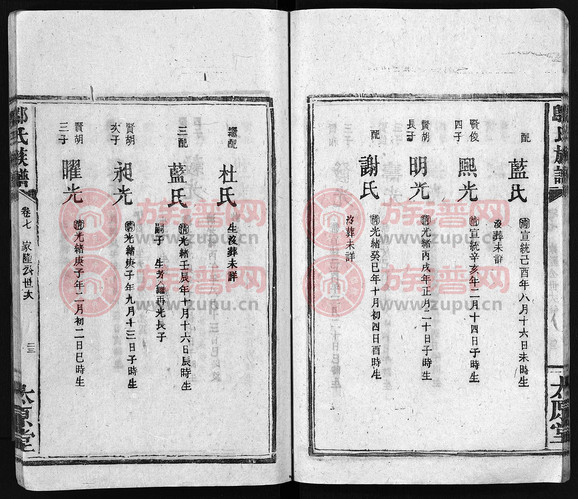 配
藍氏
清宣統己酉年八月十六日未時生
沒葬未詳
賢俊
四子
熙光
清宣統辛亥年二月十四日子時生
賢胡
長子
明光
清光緒丙戌年正月二十日子時生
配
謝氏
清光緒癸巳年十月初四日酉時生
沒葬未詳
繼配
杜氏
生沒葬未詳
三配
藍氏
清光緒壬辰年十月十六日辰時生
嗣子
再光長子
賢胡
次子
昶光
清光緒庚子年九月十三日子時生
賢胡
三子
曜光
清光緒庚子年二月初二日巳時生
鄔氏族譜
卷七
家隆公世次
太原堂
族谱网
www.zupu.cn
族谱网
www.zupu.cn